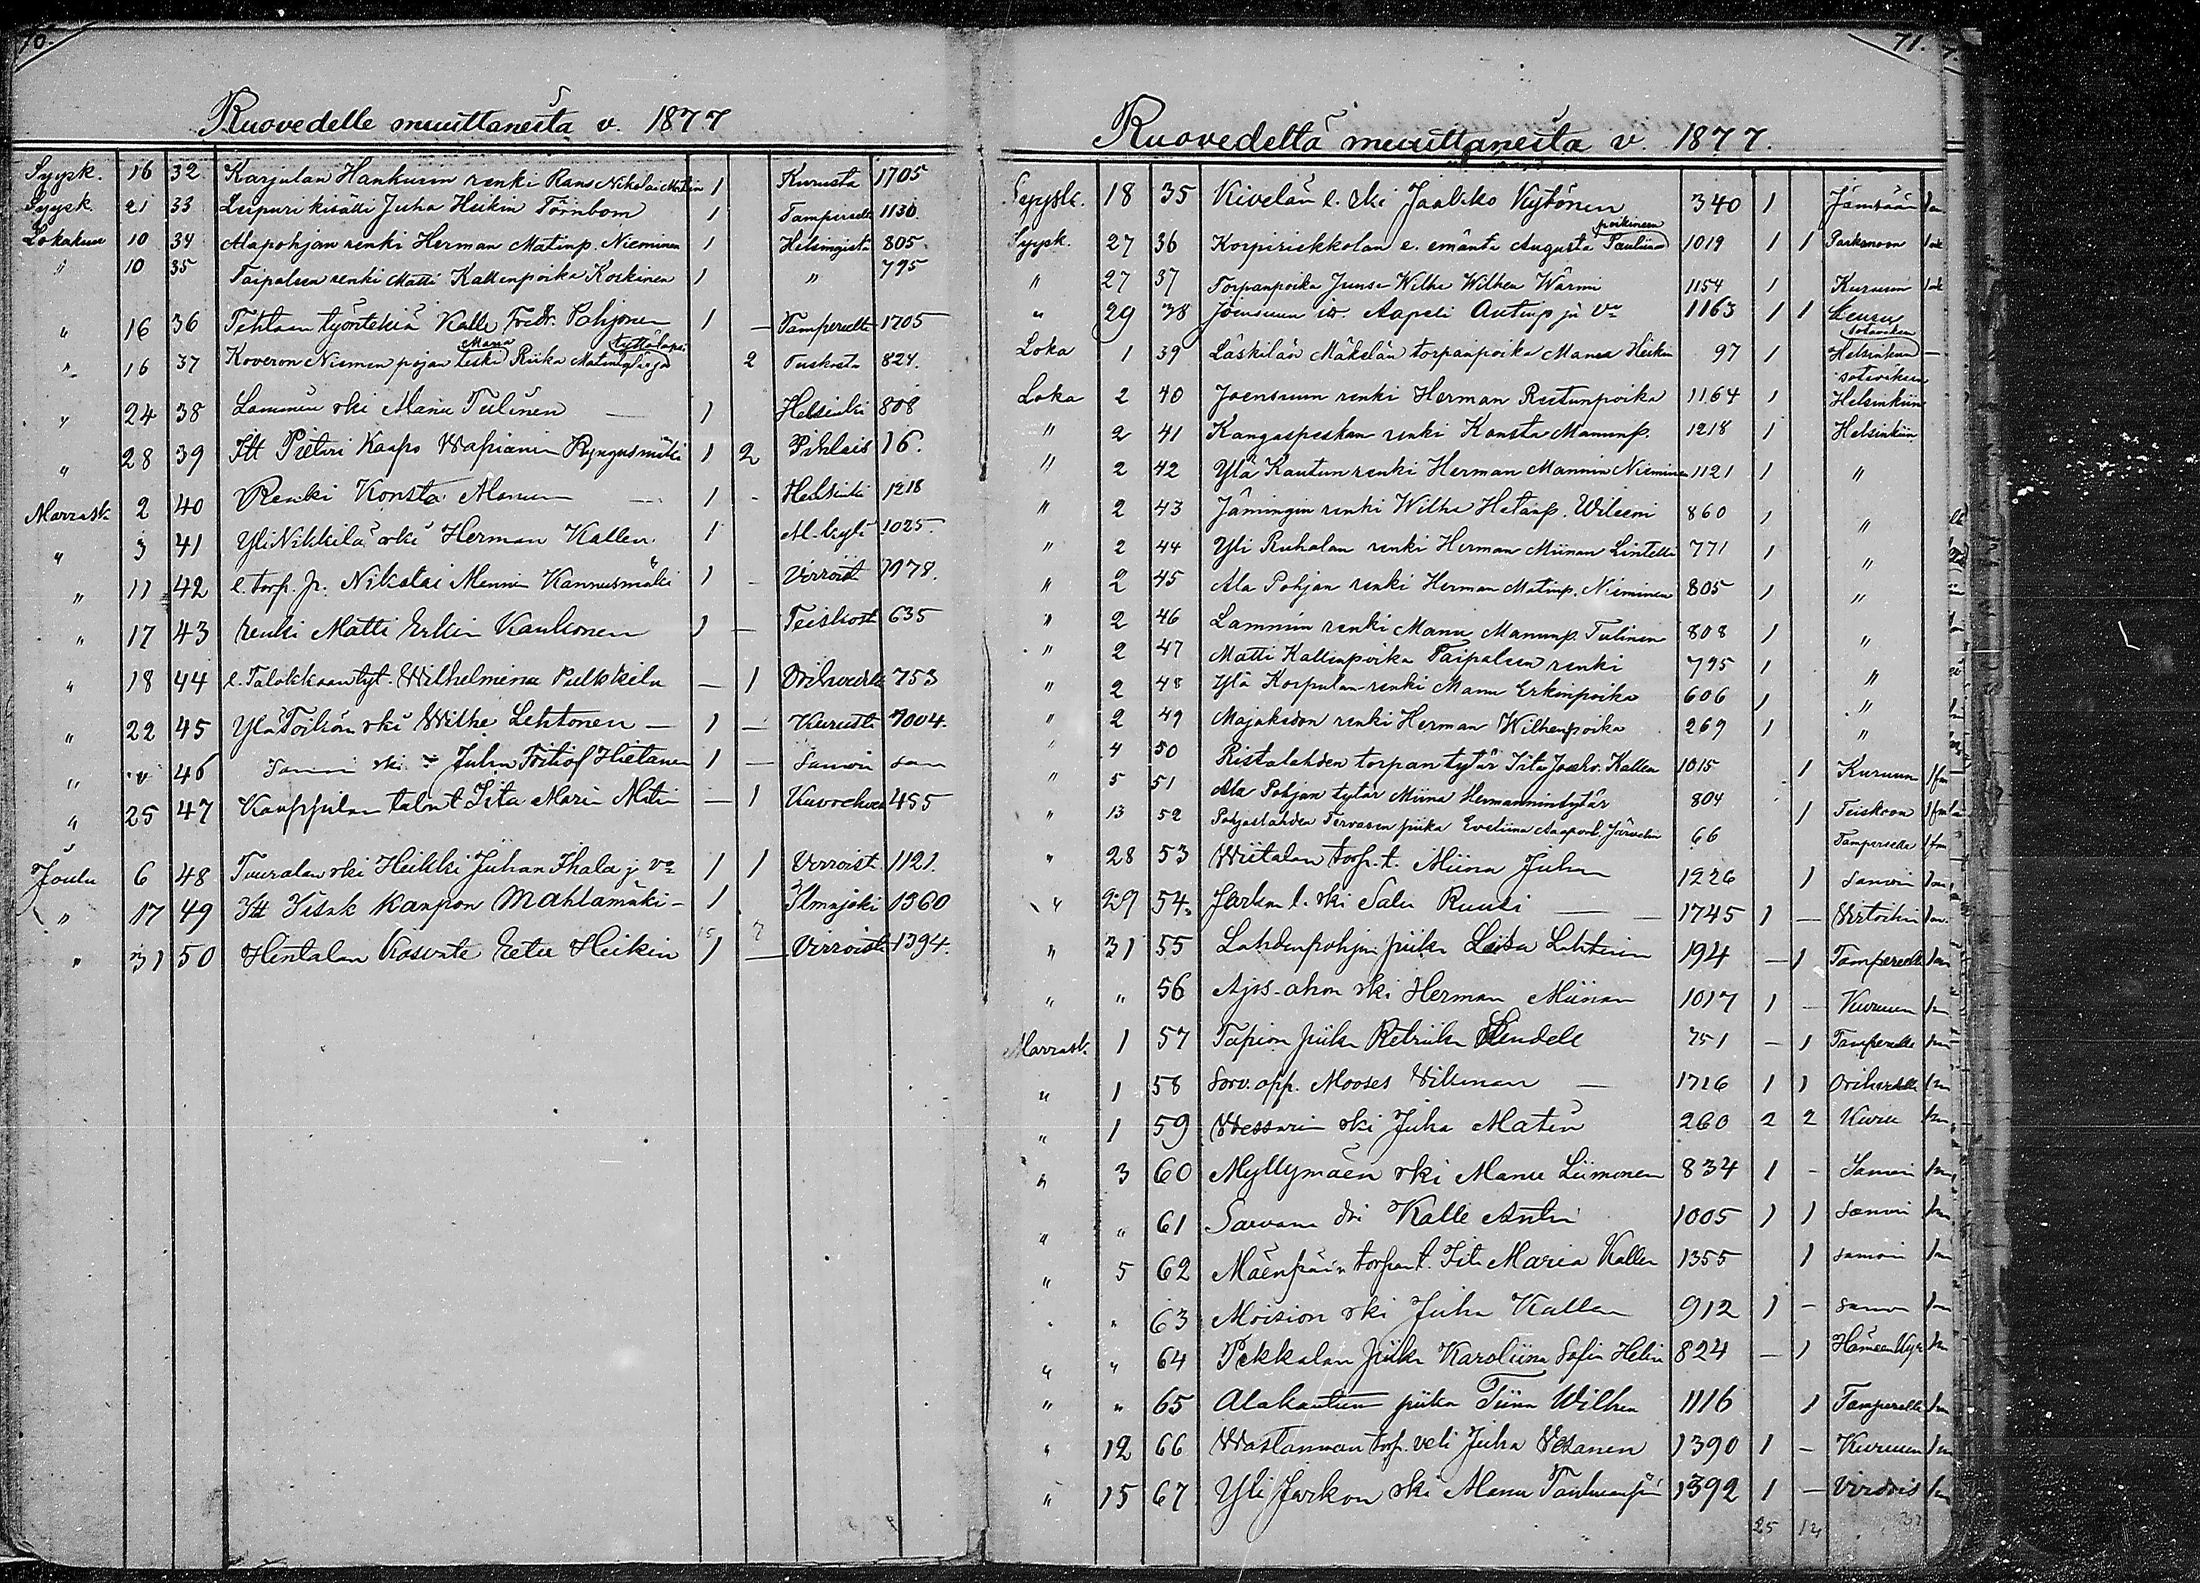 70.
Ruovedelle muuttaneista v. 1877
Syysk. 16 32 Karjulan Hankurin renki Rans Nikolai Matin 1 Kurusta 1705
Syysk. 21 33 Leipuri kisälli Juha Heikin Törnbom 1 Tampereelta 1130
Lokakuu 10 34 Alapohjan renki Herman Matinp. Nieminen 1 Helsingistä 805
" 10 35 Taipaleen renki Matti Kallenpoika Koskinen 1 " 795
" 16 36 Tehtaan työntekiä Kalle Fredr. Pohjonen 1 — Tampereelta 1705
" 16 37 Koveron Niemen Maria Riika 2 824.
" 24 38 Lammin rki Manu Tulinen — 1 Helsinki 808
" 28 39 Itt Pietari Kaapo 1 2 Pihlais 16.
Marrask 2 40 Renki Konsta Manun — 1 - Helsinki 1218
" 3 41 Yli Nikkilä rki Herman Kallen 1 1025
" 11 42 e. torp. p. Nikolai Mannin Kannusmäki 1 - Virroist 1978.
" 17 43 renki Matti Erkin Kaukonen 1 — Teiskost 635
" 18 44 e. Talokkaan tyt. Wilhelmina Pulkkila — 1 Orihvedelt 753
" 22 45 Ylä Toikon rki Wilhe Lehtonen — 1 — Kurust 1004.
" " 46 Samoin rki Juha Fritiof Hietanen 1 — Samoin sam
" 25 47 Kauppilan talont Iita Maria Matin — 1 455
Joulu 6 48 Tuuralan rki Heikki Juhan Ihala j. vo 1 1 Virroist. 1121.
" 17 49 Itt Iisak Kaapon Mahlamäki - 1 Ilmajoki 1360
" 31 50 Hintalan Kasvate Eetu Heikin 1 — Virroist 1394.
15 7
71.
Ruovedeltä muuttaneista v. 1877.
Syysk. 18 35 Kivelän e. rki Jaakko Kytönen 340 1 Jämsään
Syysk. 27 36 Korpiriekkolan e. emäntä Augusta Pauliina poikineen 1019 1 1 Parkanoon
" 27 37 Torpanpoika Juuse Wilhe Wilhen Wärmi 1154 1 Kuruun
" 29 38 Joensuun it. Aapeli Antinp ja Vo 1163 1 1 Keuru
Loka 1 39 Läskilän Mäkelän torpanpoika Manea Heikin 97 1 sotaväkeen Helsinkiin —
Loka 2 40 Joensuun renki Herman Ristunpoika 1164 1 sotaväkeen Helsinkiin
" 2 41 Kangaspeskan renki Konsta Manunp. 1218 1 Helsinkiin
" 2 42 Ylä Kautun renki Herman Mannin Nieminen 1121 1 "
" 2 43 Jämingin renki Wilhe Hetanp. 860 1 "
" 2 44 Yli Ruhalan renki Herman Miinan Lintelli 771 1 "
" 2 45 Ala Pohjan renki Herman Matinp. Nieminen 805 1 "
" 2 46 Lammin renki Manu Manunp. Tulinen 808 1 "
" 2 47 Matti Kallenpoika Taipaleen renki 795 1 "
" 2 48 Ylä Korpulan renki Manu Erkinpoika 606 1 "
" 2 49 Majakadon renki Herman Wilhenpoika 269 1 "
" 4 50 Ristalahden torpan tytär Iita Kallen 1015 1 Kuruun
" 5 51 Ala Pohjan tytär Miina Hermannintytär 804 1 Teiskoon
" 13 52 Pohjaslahden Tervasen piika Eveliina 66 Tampereelle
" 28 53 Wiitalan torp. t. Miina Juhan 1226 1 Samoin
" 29 54. Jarkon l. rki Salu Ruusi — 1745 1 —
" 31 55 Lahdenpohjan piika Leisa Lehtinen 194 — 1 Tampereelle
" " 56 Ajos-ahon rki Herman Miinan 1017 1 — Kuruun
Marrask. 1 57 Tapion piika Retriika Lindell 751 — 1 Tampereelle
" 1 58 Sorv. opp. Mooses Wikman — 1716 1 1 Orihvedelle
" 1 59 Wessarin rki Juha Matin 260 2 2 Kuru
" 3 60 Myllymäen rki Manu Liimonen 834 1 - Samoin
" " 61 Sarvana rki Kalle Antin 1005 1 1 Samoin
" 5 62 Mäenpään torpan t. Iita Maria Kallen 1355 1 samoin
" " 63 Moision rki Juha Kallen 912 1 - samoin
" " 64 Pekkalan piika Karoliina Sofia Helin 824 — 1 Hämeen Kyrö
" " 65 Alakautun piika Tiina Wilhen 1116 1 Tampereelle
" 12 66 Wastamaan torp. veli Juha Wesanen 1390 1 - Kuruun
" 15 67 Yli Jarkon rki Manu 1392 1 —
25 14